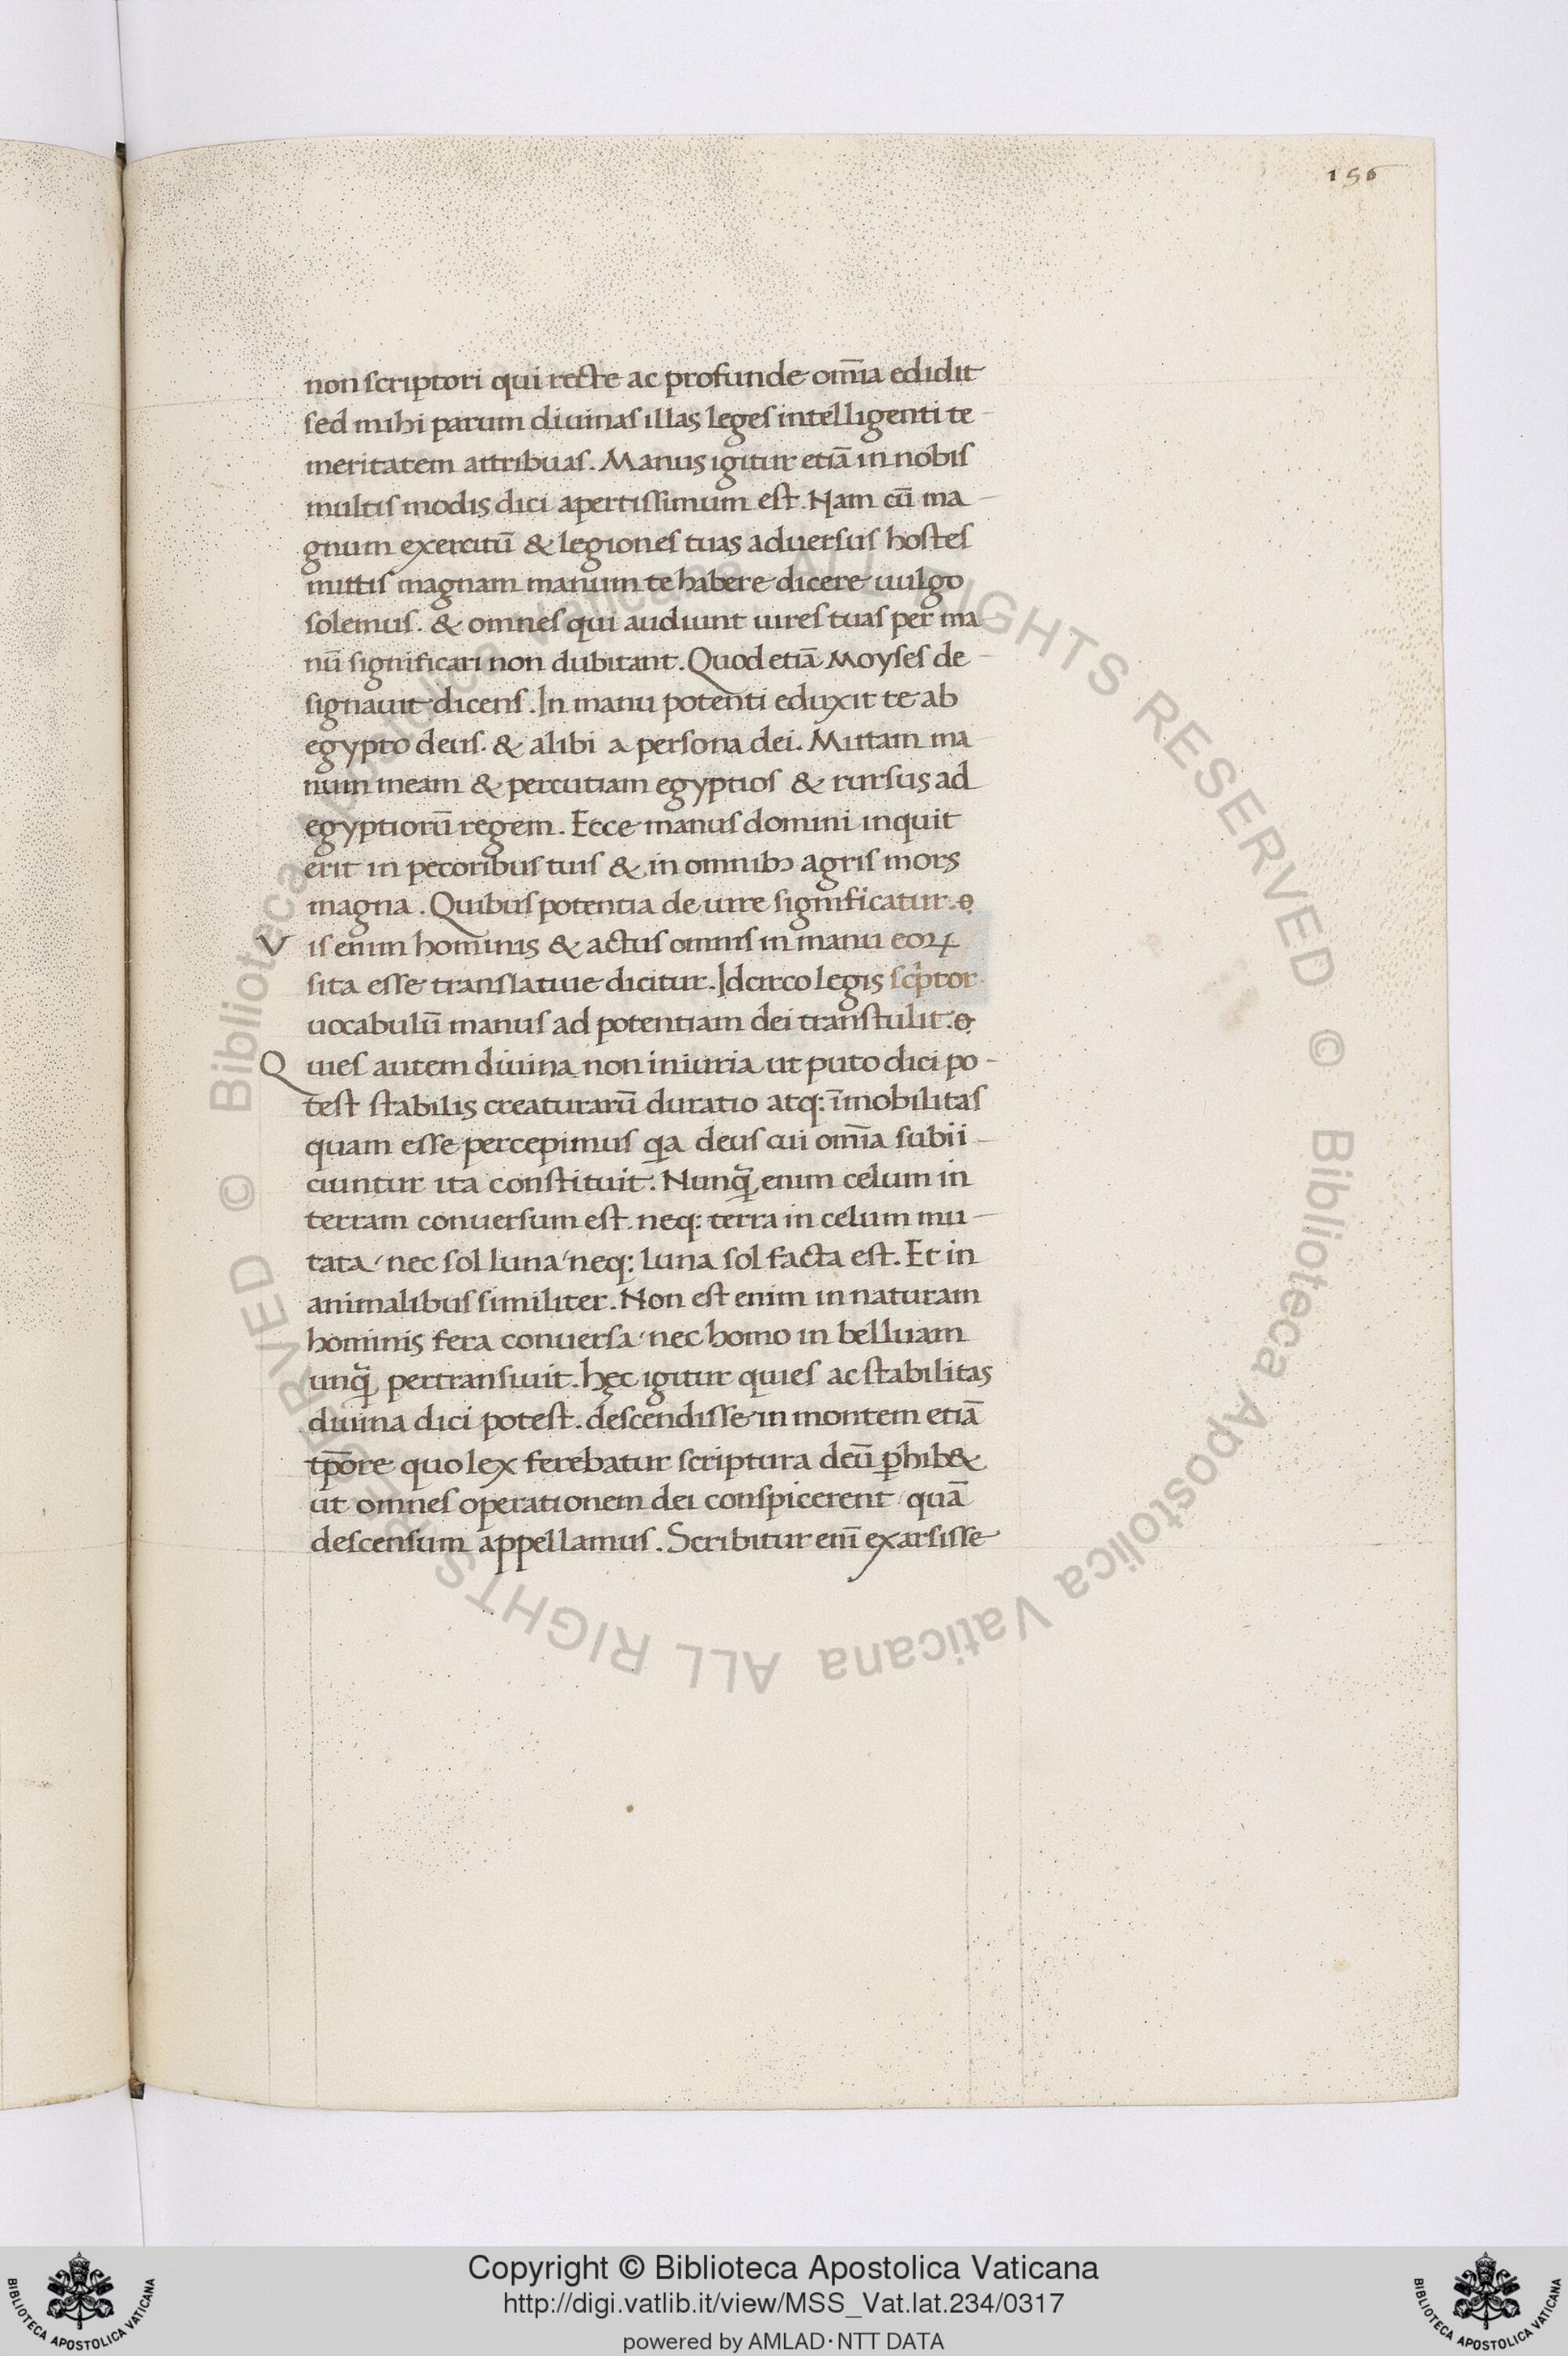 156
non scriptori qui recte ac profunde om̄ia edidit
sed mihi parum diuinas illas leges intelligenti te-
meritatem attribuas. Manus igitur etiā in nobis
multis modis dici apertissimum est. Nam cū ma-
gnum exercitū & legiones tuas aduersus hostes
mittis magnam manum te habere dicere uulgo
solemus. & omnes qui audiunt uires tuas per ma
nū significari non dubitant. Quod etiā Moyses de-
signauit dicens. In manu potenti eduxit te ab
egypto deus. & alibi a persona dei. Mittam ma
num meam & percutiam egyptios & rursus ad
egyptiorū regem. Ecce manus domini inquit
erit in pecoribus tuis & in omnibꝫ agris mors
magna. Quibus potentia de uire significatur.
Vis enim hominis & actus omnis in manu eoꝝ
sita esse translatiue dicitur. Idcirco legis scp̄tor
uocabulū manus ad potentiam dei transtulit.
Quies autem diuina non iniuria ut puto dici po-
test stabilis creaturarū duratio atq: īmobilitas
quam esse percepimus qa deus cui om̄ia subii-
ciuntur ita constituit. Nunq̄ enim celum in
terram conuersum est. neq: terra in celum mu-
tata / nec sol luna / neq: luna sol facta est. Et in
animalibus similiter. Non est enim in naturam
hominis fera conuersa / nec homo in belluam
unq̄ pertransiuit. hęc igitur quies ac stabilitas
diuina dici potest. descendisse in montem etiā
tp̄ore quo lex ferebatur scriptura deū p̱hib&
ut omnes operationem dei conspicerent / quā
descensum appellamus. Scribitur enī exarsisse
© Biblioteca Apostolica Vaticana ALL RIGHTS RESERVED © Biblioteca Apostolica Vaticana ALL RIGHTS RESERVED
Copyright © Biblioteca Apostolica Vaticana
http://digi.vatlib.it/view/MSS_Vat.lat.234/0317
powered by AMLAD·NTT DATA
BIBLIOTECA APOSTOLICA VATICANA
BIBLIOTECA APOSTOLICA VATICANA